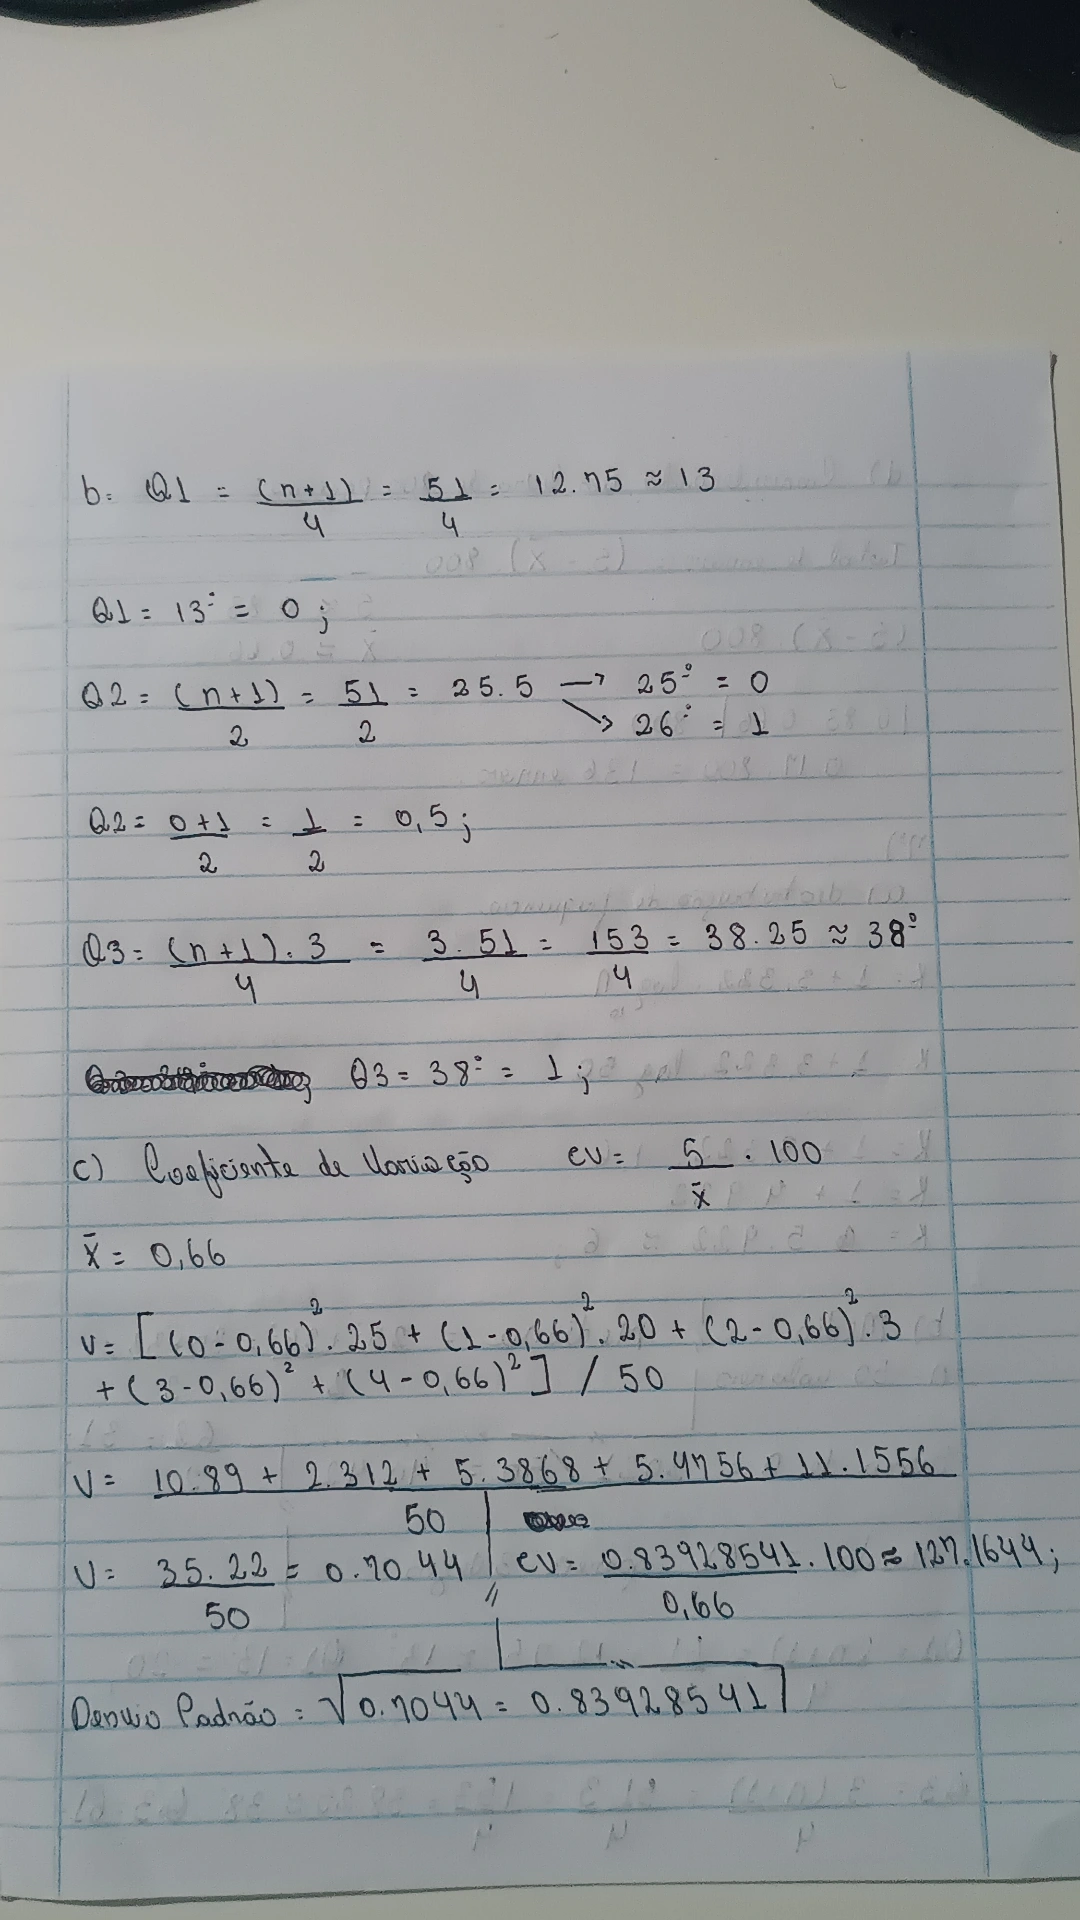 b. Q1 = (n+1)/4 = 51/4 = 12.75 ≈ 13
Q1 = 13° = 0;
Q2 = (n+1)/2 = 51/2 = 25.5 → 25° = 0
↘ 26° = 1
Q2 = 0+1/2 = 1/2 = 0,5;
Q3 = (n+1).3/4 = 3.51/4 = 153/4 = 38.25 ≈ 38°
Q3 = 38° = 1;
c) Coeficiente de Variação CV = S/x̄ . 100
x̄ = 0,66
V = [(0-0,66)².25 + (1-0,66)².20 + (2-0,66)².3
+(3-0,66)² + (4-0,66)²] / 50
V = 10.89 + 2.312 + 5.3868 + 5.4756 + 11.1556/50
V = 35.22/50 = 0.7044 CV = 0.83928541/0,66 . 100 ≈ 127.1644;
Desvio Padrão = √0.7044 = 0.83928541